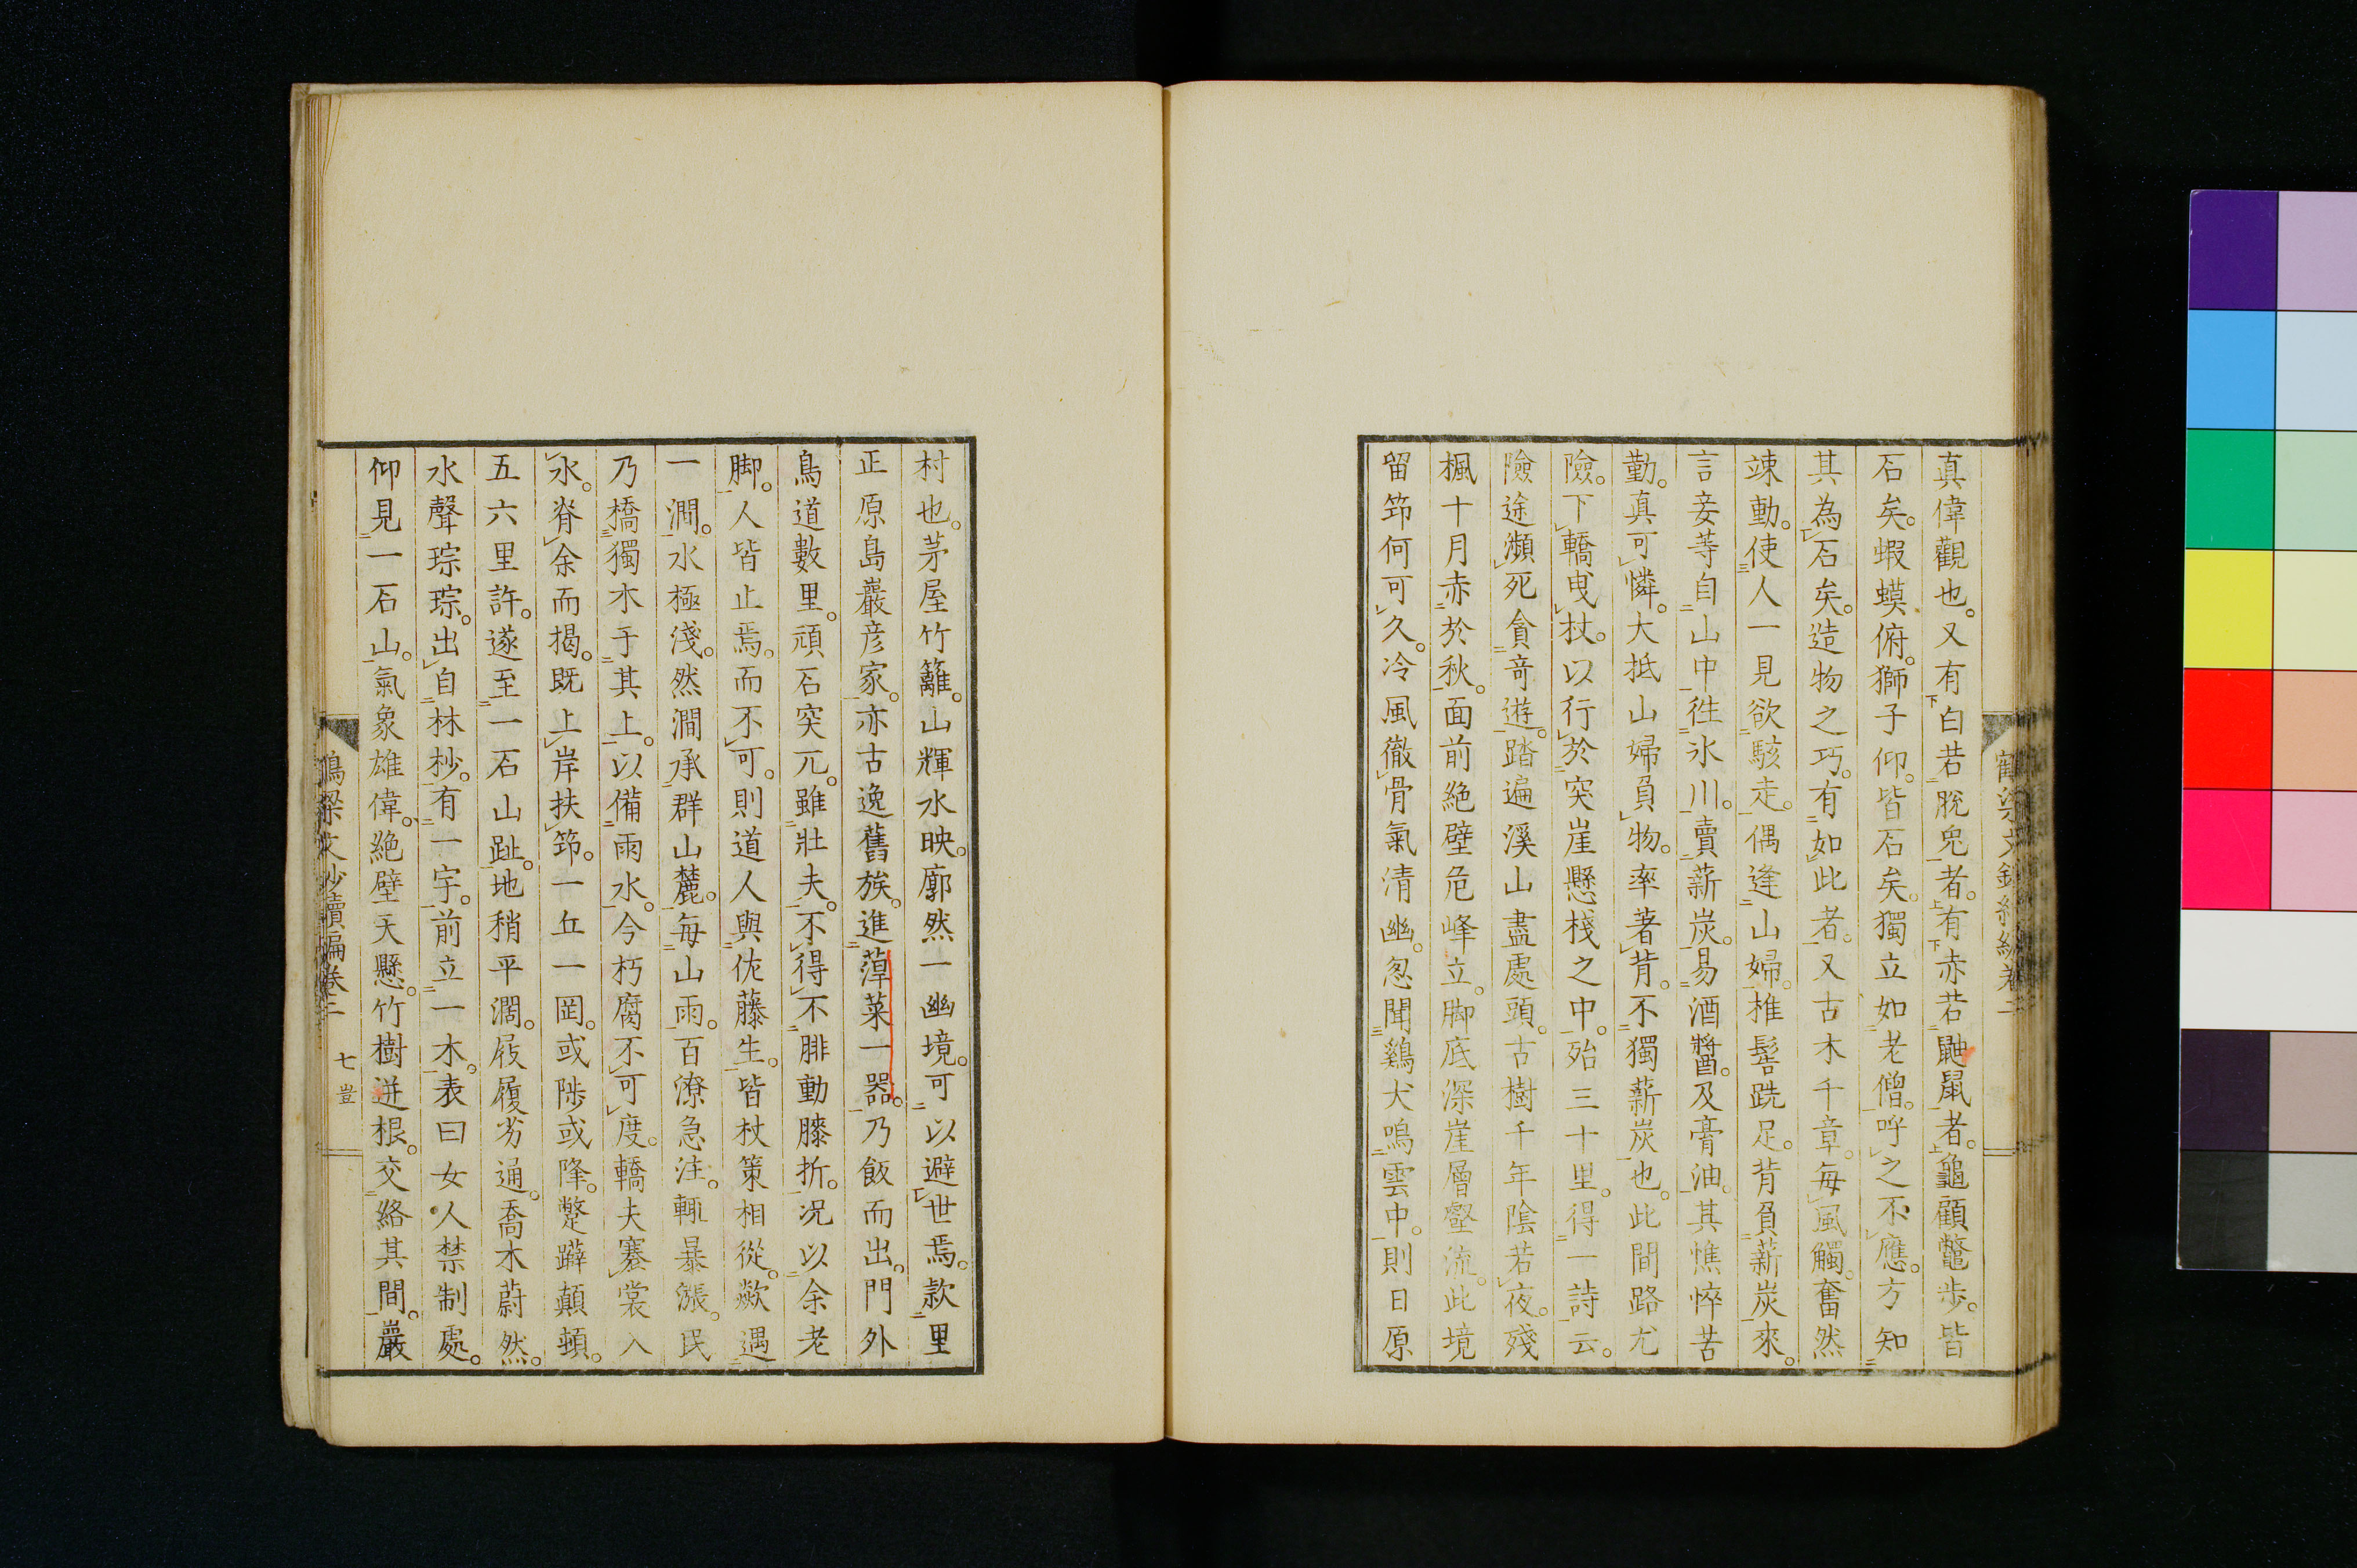 真偉觀也。又有白若脫兎者。有赤若鼬鼠者。龜顧鼈步。皆
石矣。蝦蟆俯。獅子仰。皆石矣。獨立如老僧。呼之不應。方知
其為石矣。造物之巧。有如此者。又古木千章。每風觸。奮然
竦動。使人一見欲駭走。偶逢山婦。椎髻跣足。背負薪炭來。
言妾等自山中徃氷川。賣薪炭。易酒醬。及膏油。其憔悴苦
勤。真可憐。大抵山婦負物。率著背。不獨薪炭也。此間路尤
險。下轎曳杖。以行於突崖懸棧之中。殆三十里。得一詩云。
險途瀕死貪奇遊。踏遍溪山盡處頭。古樹千年陰若夜。殘
楓十月赤於秋。面前絶壁危峰立。脚底深崖層壑流。此境
留筇何可久。冷風徹骨氣清幽。忽聞鷄犬鳴雲中。則日原
村也。茅屋竹籬。山輝水映。廓然一幽境。可以避世焉。款里
正原島巖彦家。亦古逸舊族。進蕈菜一器。乃飯而出。門外
鳥道數里。頑石突兀。雖壯夫。不得不腓動膝折。况以余老
脚。人皆止焉。而不可。則道人與佐藤生。皆杖策相從。歘遇
一澗。水極淺。然澗承群山麓。每山雨。百潦急注。輒暴漲。民
乃橋獨木于其上。以備雨水。今朽腐不可度。轎夫褰裳入
水。脊余而揭。既上岸扶筇。一丘一罔。或陟或降。蹩躃顛頓。
五六里許。遂至一石山趾。地稍平濶。屐履劣通。喬木蔚然。
水聲琮琮。出自林杪。有一宇。前立一木。表曰女人禁制處。
仰見一石山。氣象雄偉。絶壁天懸。竹樹迸根。交絡其間。巖
鶴梁文鈔續編卷二　七豈